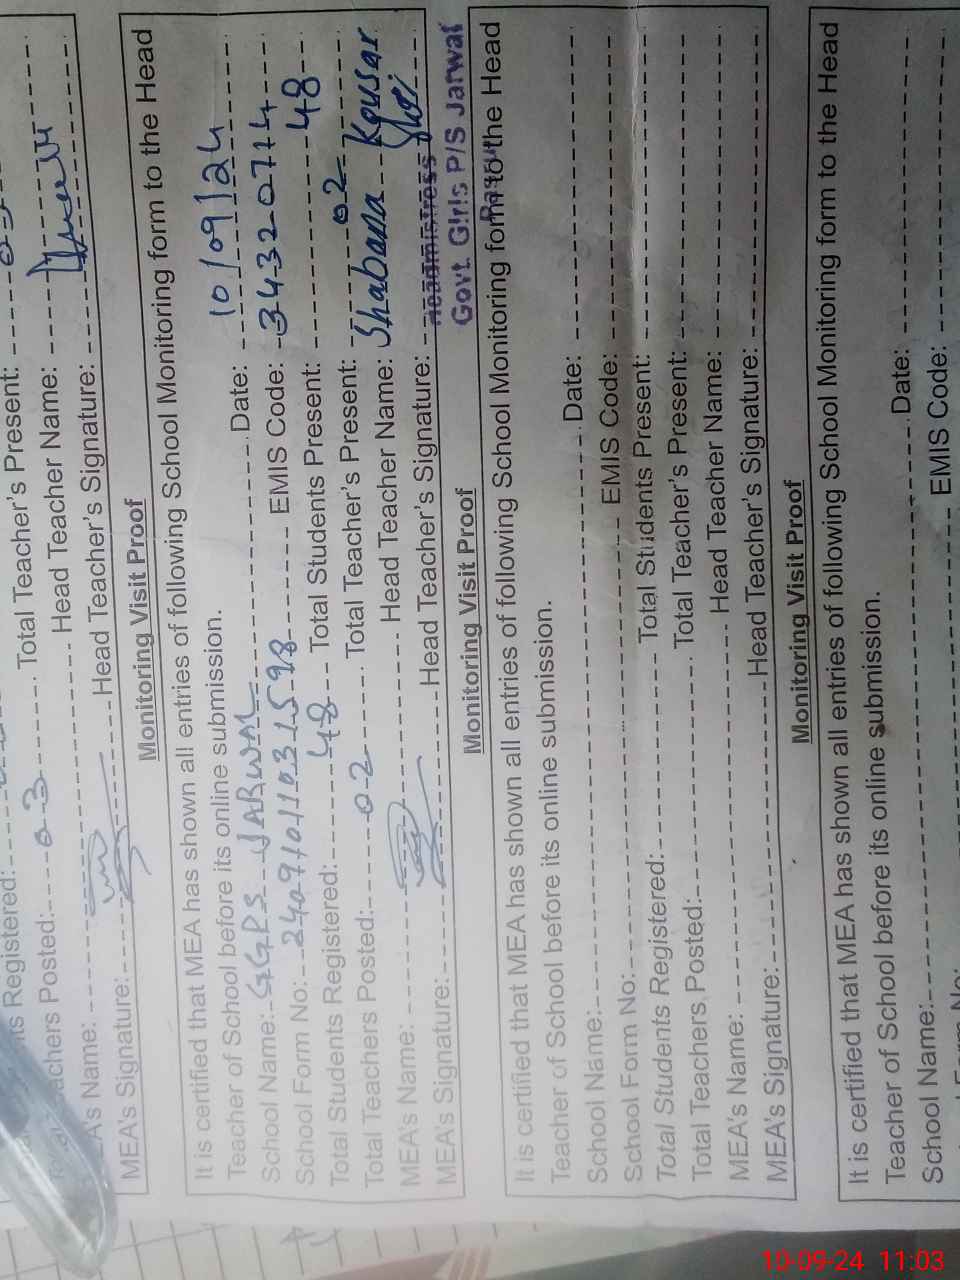 Registered:
Teachers Posted: 03 Total Teacher's Present:
MEA's Name: Head Teacher Name:
MEA's Signature: Head Teacher's Signature:
Monitoring Visit Proof
It is certified that MEA has shown all entries of following School Monitoring form to the Head
Teacher of School before its online submission.
School Name: GGPS JARWAL Date: 10/09/24
School Form No: EMIS Code: 34320714
Total Students Registered: 48 Total Students Present: 48
Total Teachers Posted: 02 Total Teacher's Present: 02
MEA's Name: Head Teacher Name: Shabana Kousar
MEA's Signature: Head Teacher's Signature:
Headmistress
Govt. Girls P/S Jarwal
Monitoring Visit Proof
It is certified that MEA has shown all entries of following School Monitoring form to the Head
Teacher of School before its online submission.
School Name: Date:
School Form No: EMIS Code:
Total Students Registered: Total Students Present:
Total Teachers Posted: Total Teacher's Present:
MEA's Name: Head Teacher Name:
MEA's Signature: Head Teacher's Signature:
Monitoring Visit Proof
It is certified that MEA has shown all entries of following School Monitoring form to the Head
Teacher of School before its online submission.
School Name: Date:
EMIS Code:
10-09-24 11:03